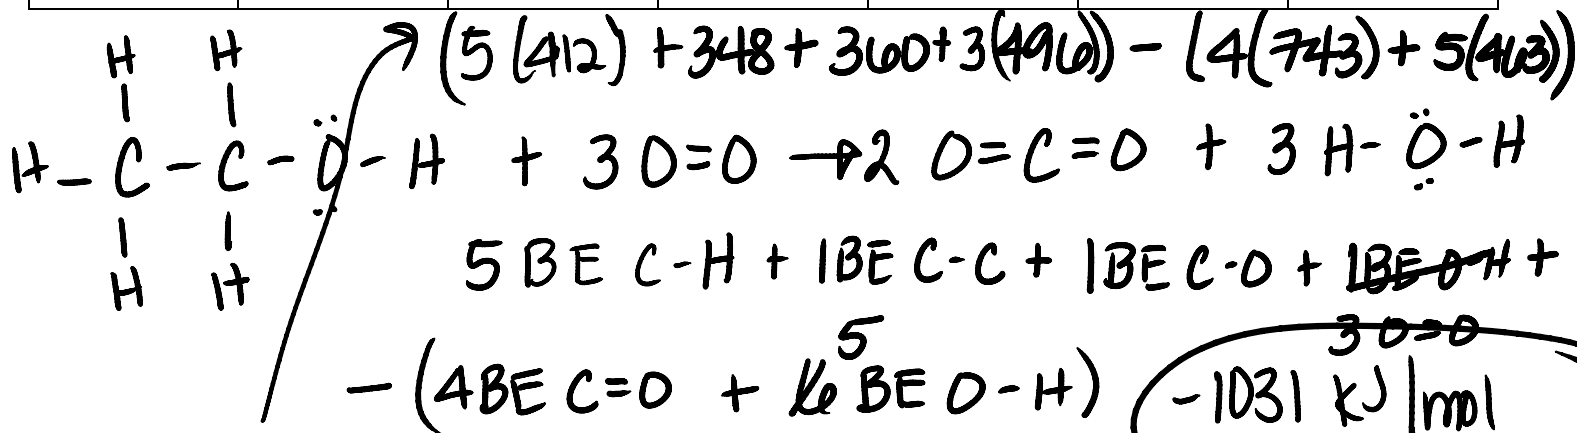 (5 (412) + 348 + 360 + 3(496)) - (4(743) + 5(463))
H H
| |
H - C - C - Ö - H + 3 O=O → 2 O=C=O + 3 H - Ö - H
| |
H H
5 BE C-H + 1BE C-C + 1BE C-O + 1BE O-H +
3 O=O
5
- (4BE C=O + 6 BE O-H) -1031 kJ/mol